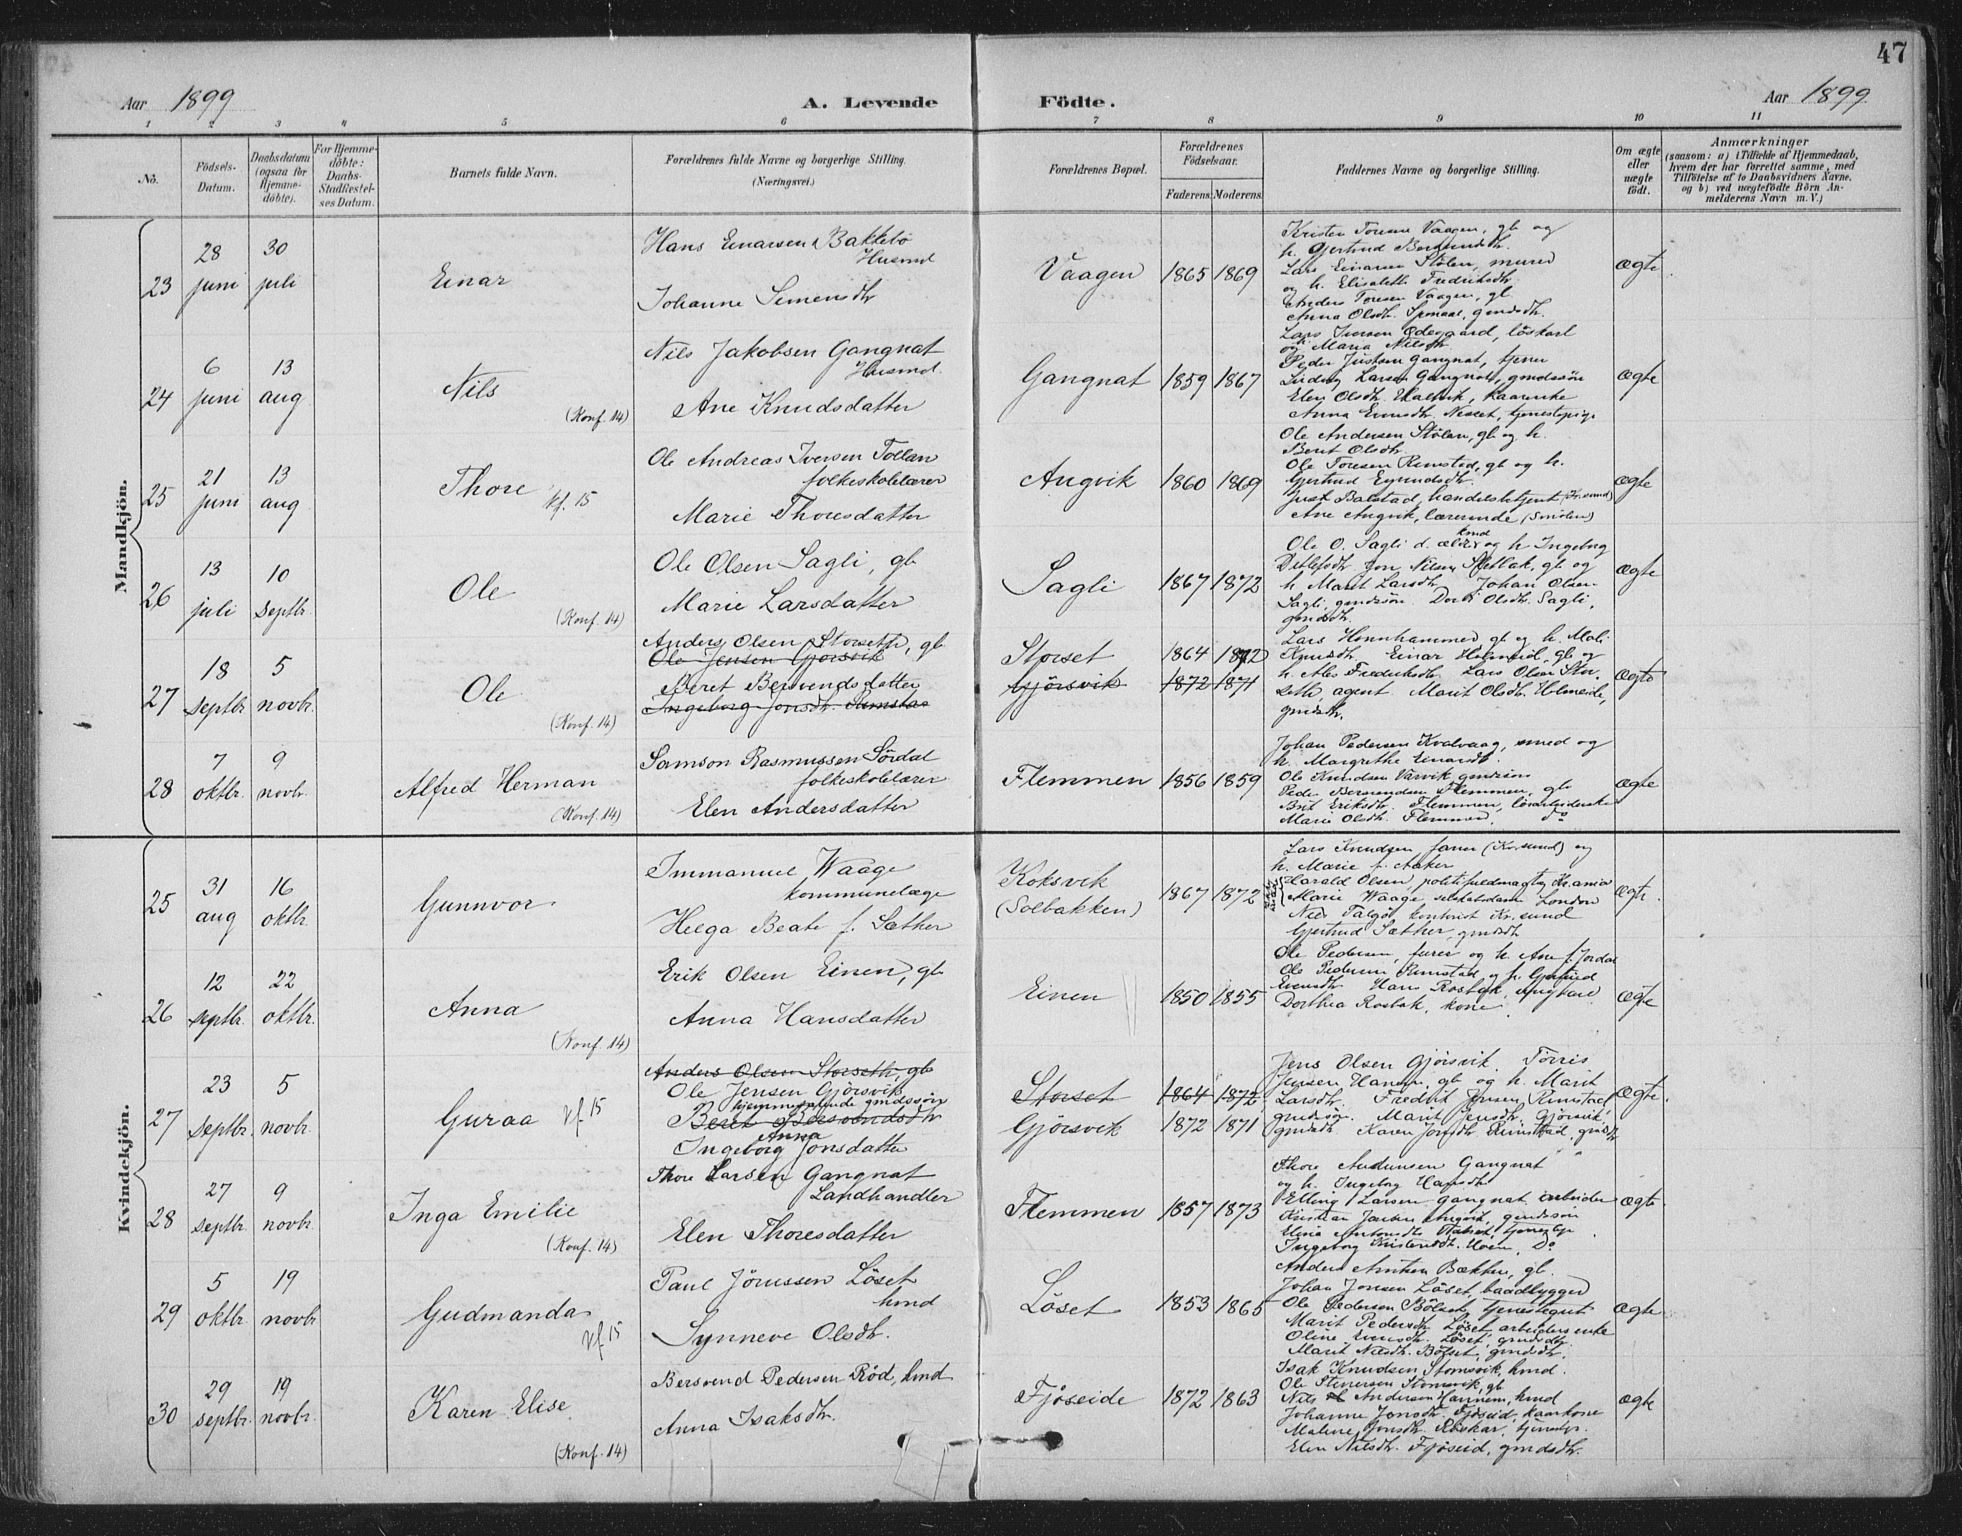 47
Aar 1899
A. Levende Födte.
Aar 1899.
1 2 3 4 5 6 7 8 9 10 11
No.
Födsels-Datum.
Daabsdatum (ogsaa for Hjemmedöbte).
For Hjemmedöbte: Daabs-Stadfæstelses Datum.
Barnets fulde Navn.
Forældrenes fulde Navne og borgerlige Stilling.
(Næringsvei.)
Forældrenes Bopæl.
Forældrenes Födselsaar.
Faderens. Moderens.
Faddernes Navne og borgerlige Stilling.
Om ægte eller uægte födt.
Anmærkninger
(saasom: a) i Tilfælde af Hjemmedaab, hvem der har forrettet samme, med Tilföielse af to Daabsvidners Navne, og b) ved uægtefödte Börn Anmelderens Navn m. V.)
Mandkjön.
23
28 juni
30 juli
Einar
Hans Einarsen Bakkebö
Husmd
Johanne Simensdtr
Vaagen
1865 1869
Krister Toresen Vaagen, gb og
h. Gjertrud
Lars Einarsen Stölen, murer
og h. Elisabeth Fredriksdtr
Anders Toresen Vaagen, gb.
Anna Olsdtr.
ægte
24
6 juni
13 aug
Nils
(Konf. 14)
Nils Jakobsen Gangnat
Husmd.
Ane Knudsdatter
Gangnat
1859 1867
Lars Iversen Ödegaard, löskarl
og Maria Nilsdtr.
Peder Gangnat, tjener
Ludvig Larsen Gangnat, gmdssön
Elen Olsdtr.
Anna Nesset, tjenestepige
ægte
25
21 juni
13 aug
Thore
kf. 15
Ole Andreas Iversen Tollan
folkeskolelærer
Marie Thoresdatter
Angvik
1860 1869
Ole Andersen Stölen, gb og h.
Berit Olsdtr.
Ole Toresen Rimstad, gb og h.
Gjertrud
Just handelsbetjent (Kr.sund)
Ane Angvik, lærerinde
ægte
26
13 juli
10 Septbr.
Ole
(Konf. 14)
Ole Olsen Sagli, gb
Marie Larsdatter
Sagli
1867 1872
Ole O. Sagli d. ældre kmd og h. Ingeborg
Jon Nilsen gb og
h. Marit Larsdtr. Johan Olsen
Sagli, gmdssön. Olsdtr. Sagli,
gmdsdtr.
ægte
27
18 Septbr.
5 novbr.
Ole
(Konf. 14)
Anders Olsen Storseth, gb
Ole Jensen Gjörsvik
Beret Bersvendsdatter
Ingeborg Jonsdtr. Rimstad
Storset
Gjörsvik
1864 1872
1872 1871
Lars Honnhammer gb og h. Mali
Knudsdtr. Einar Holmeid, gb og
h. Ales Fredriksdtr. Lars Olsen Storseth, agent Marit Olsdtr. Holmeide,
gmdsdtr.
ægte
28
7 oktbr.
9 novbr.
Alfred Herman
(Konf. 14)
Samson Rasmussen Sördal
folkeskolelærer
Elen Andersdatter
Flemmen
1856 1859
Johan Pedersen Kvalvaag, smed og
h. Margrethe Einarsdtr.
Ole Knudsen Varvik gmdssön
Peder Bersvendsen Flemmen, gb
Brit Eriksdtr. Flemmen, lösarbeiderske
Marie Olsdtr. Flemmen, do
ægte
Kvindekjön.
25
31 aug
16 oktbr.
Gunnvor
Immanuel Waage
kommunelæge
Helga Beate f. Sæther
Koksvik
(Solbakken)
1867 1872
Lars Knudsen (Kr.sund) og
h. Marie f. Aaker
Harald Olsen, politifuldmægtig Kr.ania
Marie Waage selskabsdame London
Nils kontorist Kr.sund
Gjertrud Sæther, gmdsdtr
ægte.
26
12 septbr.
22 oktbr.
Anna
(Konf. 14)
Erik Olsen Einen, gb
Anna Hansdatter
Einen
1850 1855
Ole Pedersen, furer og h. Ane f. Jordal
Ole Pedersen Rimstad og h. Gjertrud
Hans Rosbak, ungkarl
Dorthea Rosbak, kone.
ægte
27
23 Septbr.
5 novbr.
Guraa
kf. 15
Anders Olsen Storseth, gb
Ole Jensen Gjörsvik
hjemmeværende gmdssön
Beret Bersvendsdtr
Anna
Ingeborg Jonsdatter
Storset
Gjörsvik
1864 1872
1872 1871
Jens Olsen Gjörsvik. Törris
Jensen Hanem, gb og h. Marit
Larsdtr. Fredrik Jensen Rimstad
gmdssön. Marit Jensdtr. Gjörsvik,
gmdsdtr. Karen Jonsdtr. Rimstad, gmdsdtr
ægte.
28
27 septbr.
9 novbr.
Inga Emilie
(Konf. 14)
Thore Larsen Gangnat
Landhandler
Elen Thoresdatter
Flemmen
1857 1873
Thore Andersen Gangnat
og h. Ingeborg
Elling Larsen Gangnat arbeider
Kristian Angvik, gmdssön
Ingeborg Kristensdtr. do
ægte.
29
5 oktbr.
19 novbr
Gudmanda
kf. 15
Paul Jörussen Löset
hmd
Synneve Olsdtr.
Löset
1853 1865
Anders Bækken, gb.
Johan Jonsen Löset, baadbygger
Ole Pedersen Bölset, tjenestegut
Marit Pedersdtr. Löset, arbeiderenke
Oline Löset, gmdsdtr
Marit Nilsdtr. Bölset, gmdsdtr.
ægte
30
29 septbr.
19 novbr.
Karen Elise
(Konf. 14)
Bersvend Pedersen Röd, hmd
Anna Isaksdtr.
Fjöseide
1872 1863
Isak Knudsen Stomsvik, hmd.
Ole Steversen Stomsvik, gb
Nils Andersen Hannem, hmd
Johanne Jonsdtr. Fjöseid, kaarkone
Malene Jonsdtr. Röskar, tjenestp.
Elen Nilsdtr. Fjöseid, gmdsdtr.
ægte